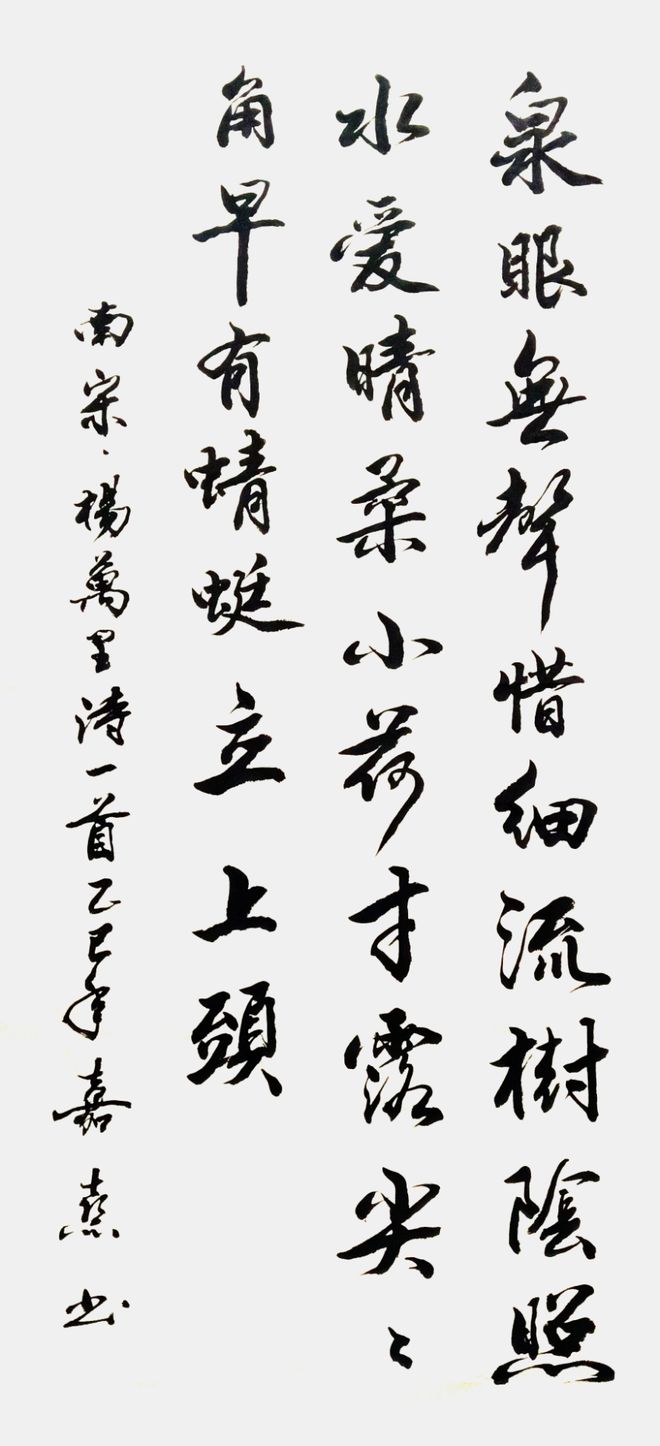 泉眼無聲惜細流樹陰照
水爱晴柔小荷才露尖〻
角早有蜻蜓立上頭
南宋·楊萬里詩一首乙巳年嘉熹书